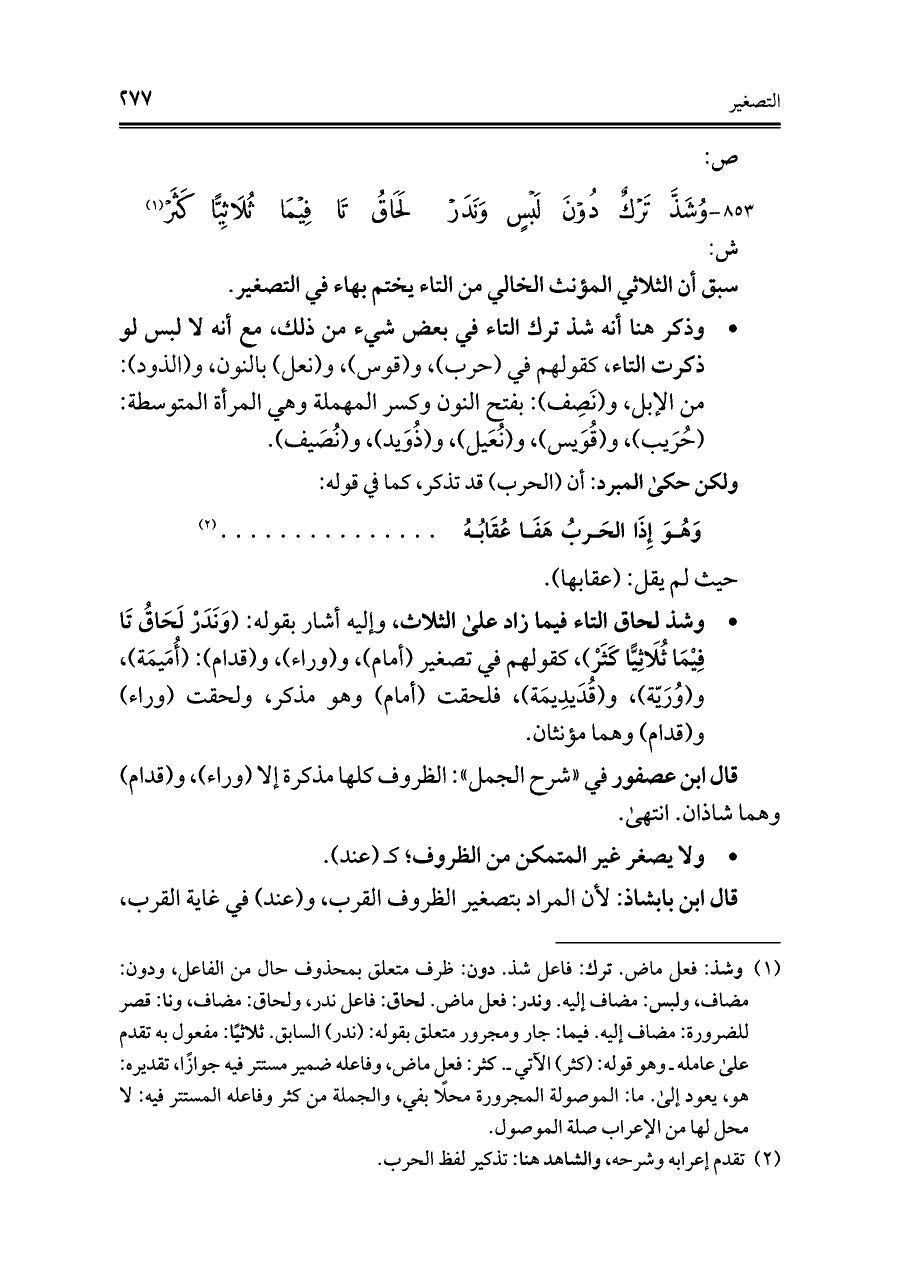 التصغير ٢٧٧
ص:
٨٥٣-وَشَذَّ تَرْكٌ دُوْنَ لَبْسٍ وَنَدَرْ لَحَاقُ تَا فِيْمَا ثُلَاثِيًّا كَثَرْ(١)
ش:
سبق أن الثلاثي المؤنث الخالي من التاء يختم بهاء في التصغير.
• وذكر هنا أنه شذ ترك التاء في بعض شيء من ذلك، مع أنه لا لبس لو
ذكرت التاء، كقولهم في (حرب)، و(قوس)، و(نعل) بالنون، و(الذود):
من الإبل، و(نَصِف): بفتح النون وكسر المهملة وهي المرأة المتوسطة:
(حُرَيب)، و(قُوَيس)، و(نُعَيل)، و(ذُوَيد)، و(نُصَيف).
ولكن حكىٰ المبرد: أن (الحرب) قد تذكر، كما في قوله:
وَهُـوَ إِذَا الحَـربُ هَفَـا عُقَابُـهُ . . . . . . . . . . . . . . . (٢)
حيث لم يقل: (عقابها).
• وشذ لحاق التاء فيما زاد علىٰ الثلاث، وإليه أشار بقوله: (وَنَدَرْ لَحَاقُ تَا
فِيْمَا ثُلَاثِيًّا كَثَرْ)، كقولهم في تصغير (أمام)، و(وراء)، و(قدام): (أُمَيمَة)،
و(وُرَيّة)، و(قُدَيدِيمَة)، فلحقت (أمام) وهو مذكر، ولحقت (وراء)
و(قدام) وهما مؤنثان.
قال ابن عصفور في «شرح الجمل»: الظروف كلها مذكرة إلا (وراء)، و(قدام)
وهما شاذان. انتهىٰ.
• ولا يصغر غير المتمكن من الظروف؛ كـ (عند).
قال ابن بابشاذ: لأن المراد بتصغير الظروف القرب، و(عند) في غاية القرب،
(١) وشذ: فعل ماض. ترك: فاعل شذ. دون: ظرف متعلق بمحذوف حال من الفاعل، ودون:
مضاف، ولبس: مضاف إليه. وندر: فعل ماض. لحاق: فاعل ندر، ولحاق: مضاف، ونا: قصر
للضرورة: مضاف إليه. فيما: جار ومجرور متعلق بقوله: (ندر) السابق. ثلاثيًا: مفعول به تقدم
علىٰ عامله ـ وهو قوله: (كثر) الآتي ـ. كثر: فعل ماض، وفاعله ضمير مستتر فيه جوازًا، تقديره:
هو، يعود إلىٰ. ما: الموصولة المجرورة محلًا بفي، والجملة من كثر وفاعله المستتر فيه: لا
محل لها من الإعراب صلة الموصول.
(٢) تقدم إعرابه وشرحه، والشاهد هنا: تذكير لفظ الحرب.